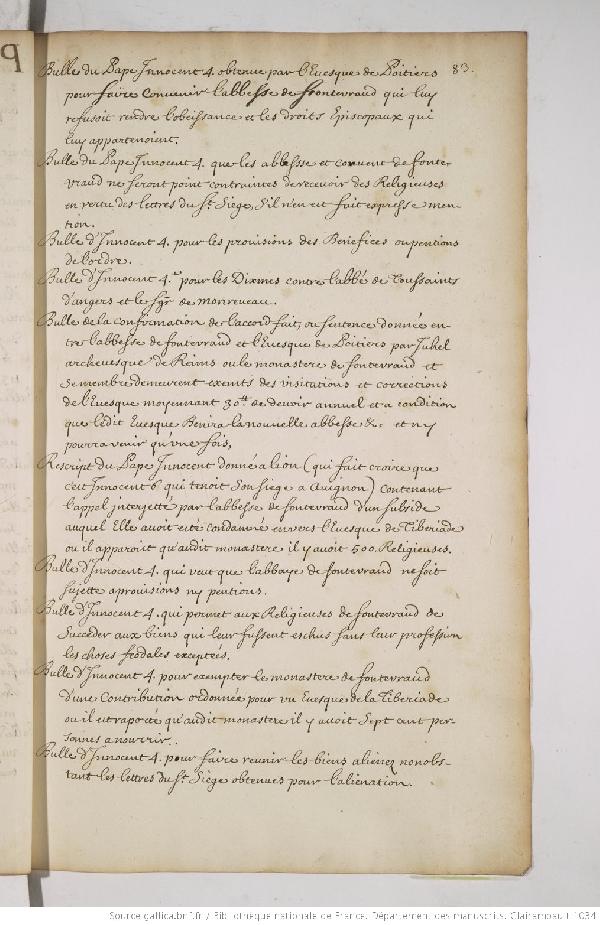 83.
Bulle du Pape Innocent 4. obtenue par l'Evesque de Poitiers
pour faire convenir l'abbesse de frontevraud qui luy
refusoit rendre l'obeissance et les droits Episcopaux qui
luy appartenoient.
Bulle du Pape Innocent 4. que les abbesse et convent de fonte-
vraud ne seront point contraintes de recevoir des Religieuses
en vertu des lettres du St. Siege, S'il n'en est fait expresse men-
tion.
Bulle d'Innocent 4. pour les provisions des Benefices ou pentions
de l'ordre.
Bulle d'Innocent 4. pour les Dixmes contre l'abbé de Toussaints
d'angers et le Sgr. de monreveau.
Bulle de la confirmation de l'accord fait, ou sentence donnée en-
tre l'abbesse de fontevraud et l'Evesque de Poitiers par Juhel
archevesque de Reims ou le monastere de fontevraud et
se membre demeurent exemts des visitations et corrections
de l'Evesque moyennant 30tt. de devoir annuel et a condition
que ledit Evesque Benira la nouvelle abbesse &c. et n'y
pourra venir qu'une fois,
Rescript du Pape Innocent donné a lion (qui fait croire que
c'est Innocent 6 qui tenoit son siege a Avignon) contenant
l'appel interjetté par l'abbesse de fontevraud d'un subside
auquel Elle avoit esté condamné envers l'Evesque de Tiberiade
ou il apparoit qu'audit monastere il y avoit 500. Religieuses.
Bulle d'Innocent 4. qui veut que l'abbaye de fontevraud ne soit
sujette a provisions ny pentions.
Bulle d'Innocent 4. qui permet aux Religieuses de fontevraud de
Succeder aux biens qui leur fussent eschus sans leur profession
les choses féodales exceptées.
Bulle d'Innocent 4. pour exempter le monastere de fontevraud
d'une Contribution ordonnée pour un Evesque de la Tiberiade
ou il est raporté qu'audit monastere il y avoit Sept cent per-
sonnes a nourrir.
Bulle d'Innocent 4. pour faire reunir les biens alienez nonobs-
tant les lettres du St. Siege obtenues pour l'alienation.
Source gallica.bnf.fr / Bibliothèque nationale de France. Département des manuscrits. Clairambault 1034